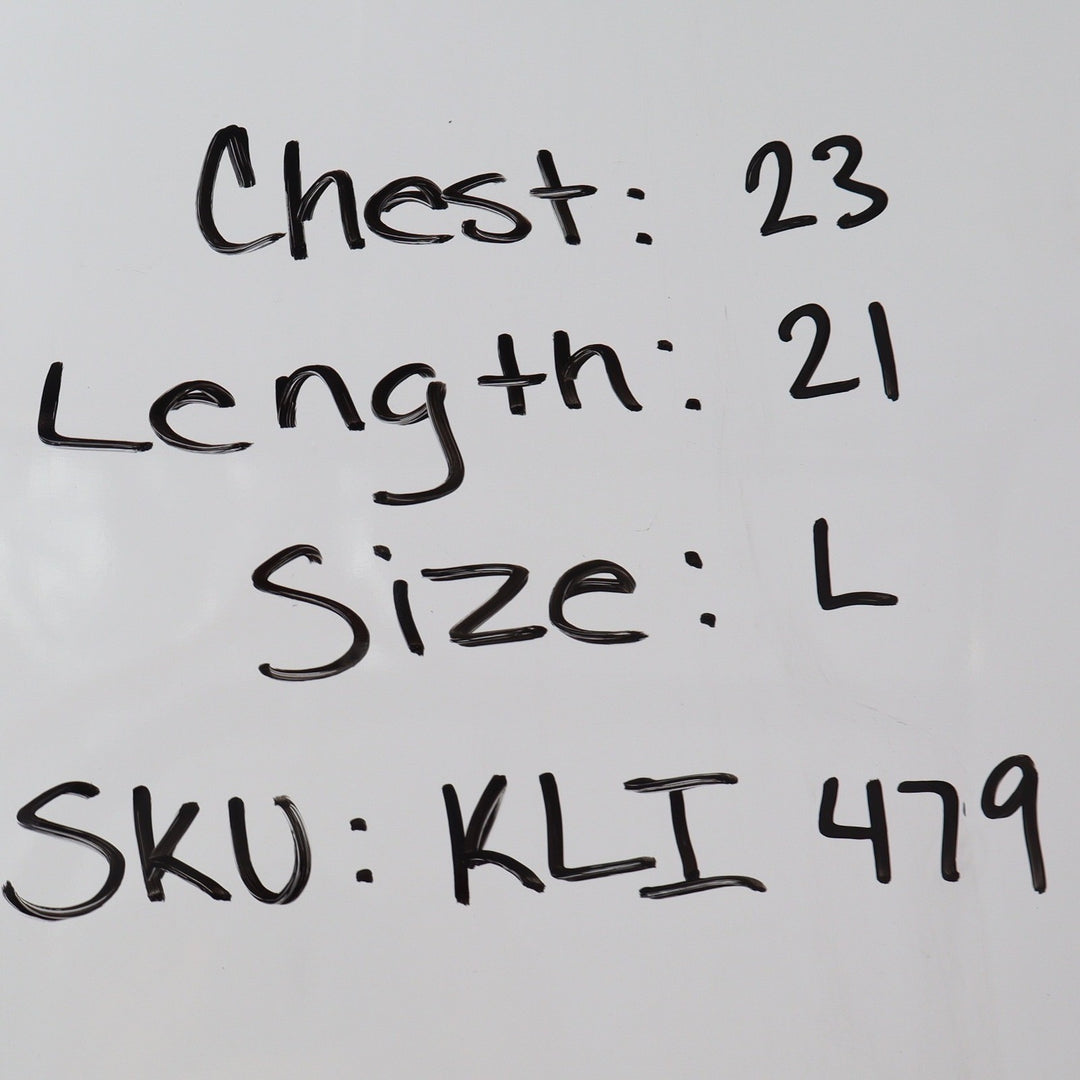 Chest: 23
Length: 21
Size: L
SKU: KLI 479